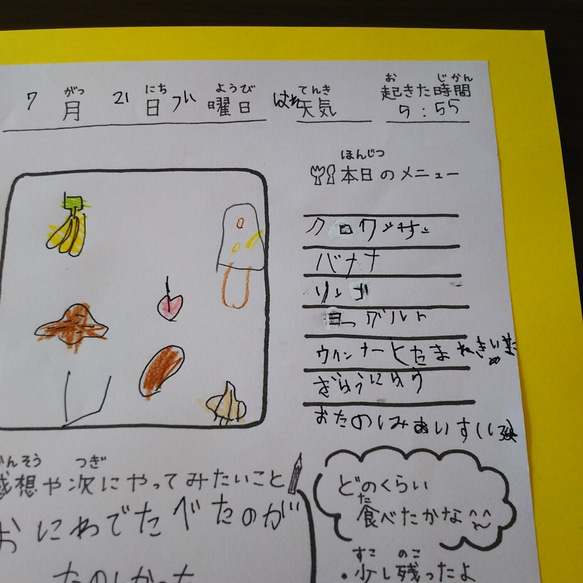 7月 21日 曜日 はれ 天気 起きた時間 5:55
がつ にち ようび てんき お じかん
ほんじつ
本日のメニュー
クロワッサン
バナナ
リンゴ
ヨーグルト
ウインナーとたまねぎ
ぎゅうにゅう
おたのしみあいす
かんそう つぎ
感想や次にやってみたいこと
おにわでたべたのが
たのしかった
どのくらい
た
食べたかな^^
すこ のこ
・少し残ったよ